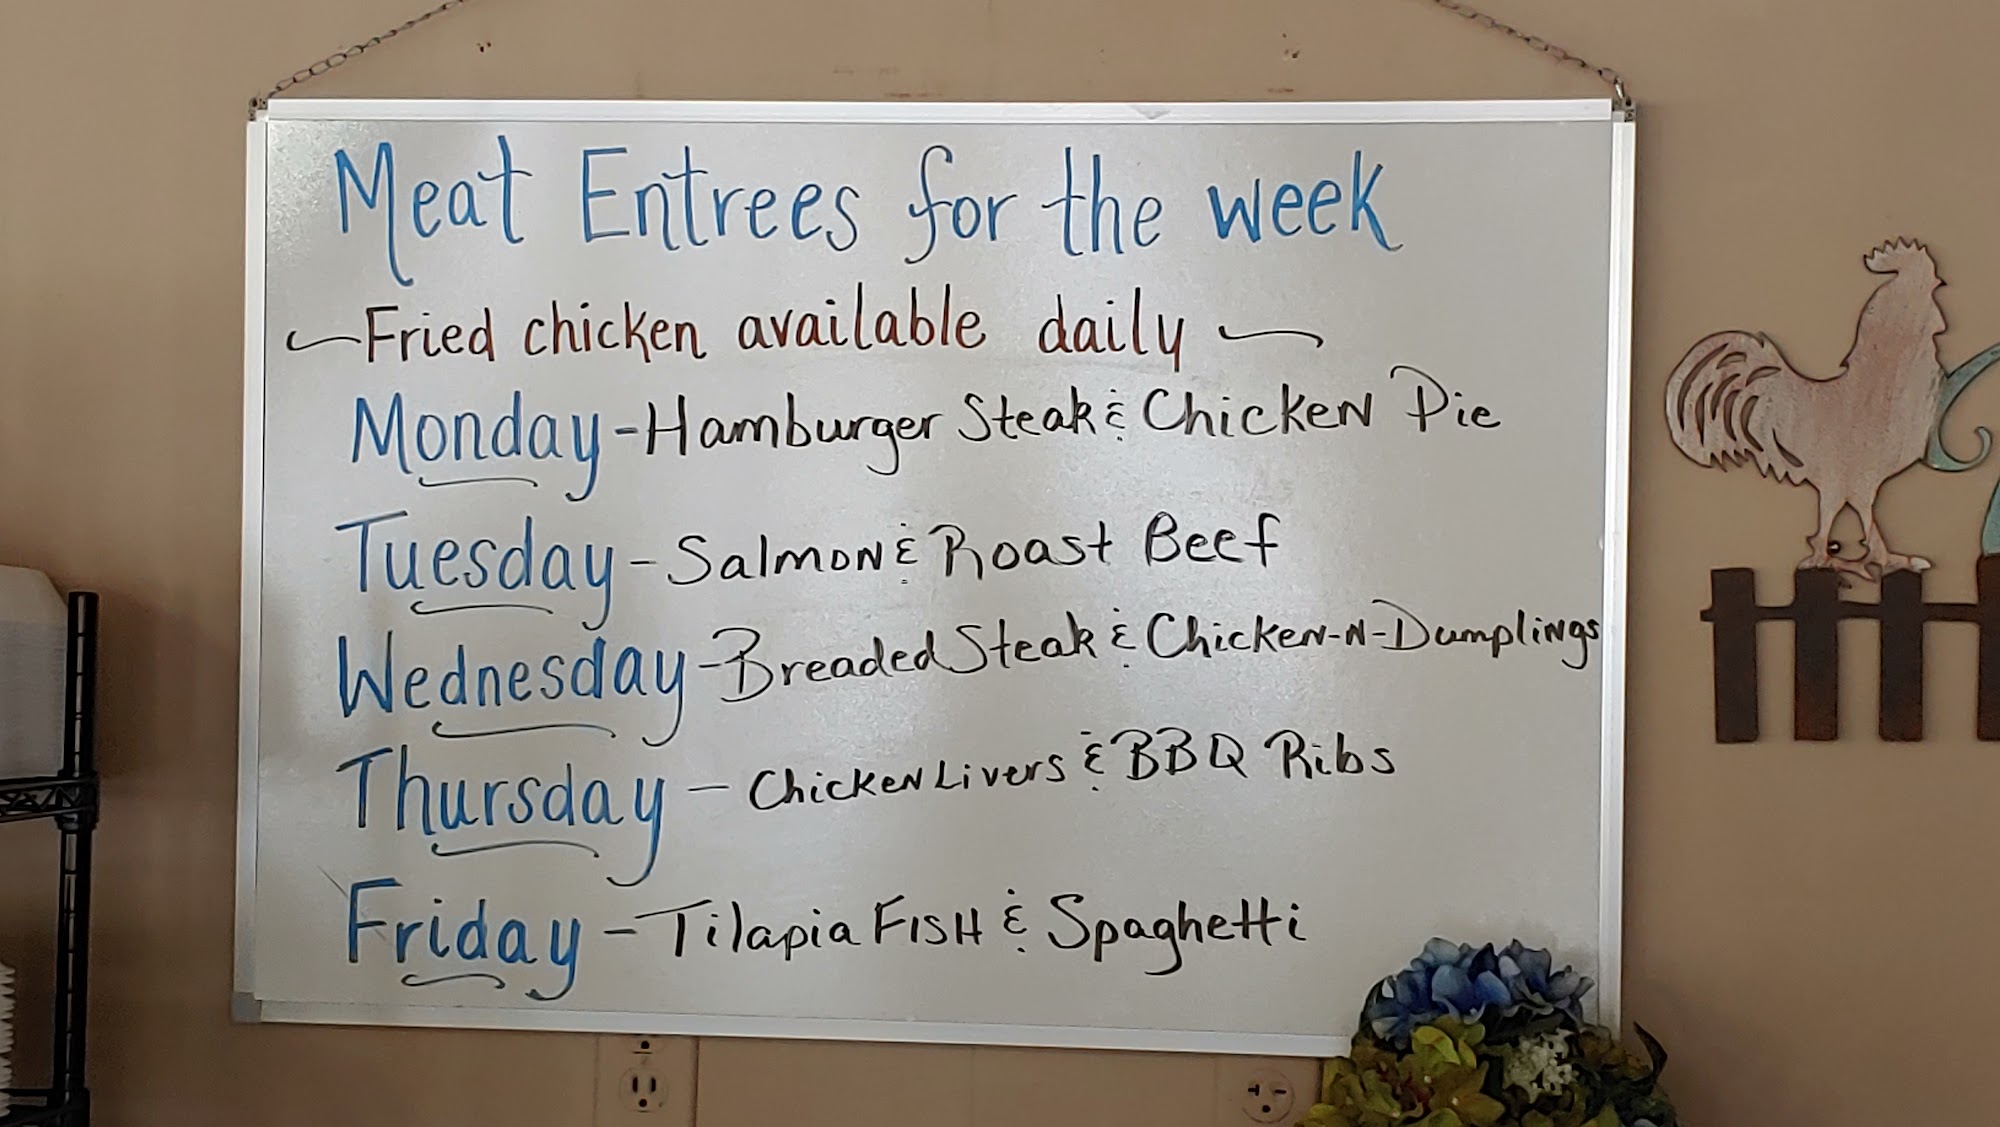 Meat Entrees for the week
~Fried chicken available daily~
Monday - Hamburger Steak & Chicken Pie
Tuesday - Salmon & Roast Beef
Wednesday - Breaded Steak & Chicken-N-Dumplings
Thursday - Chicken Livers & BBQ Ribs
Friday - Tilapia FISH & Spaghetti